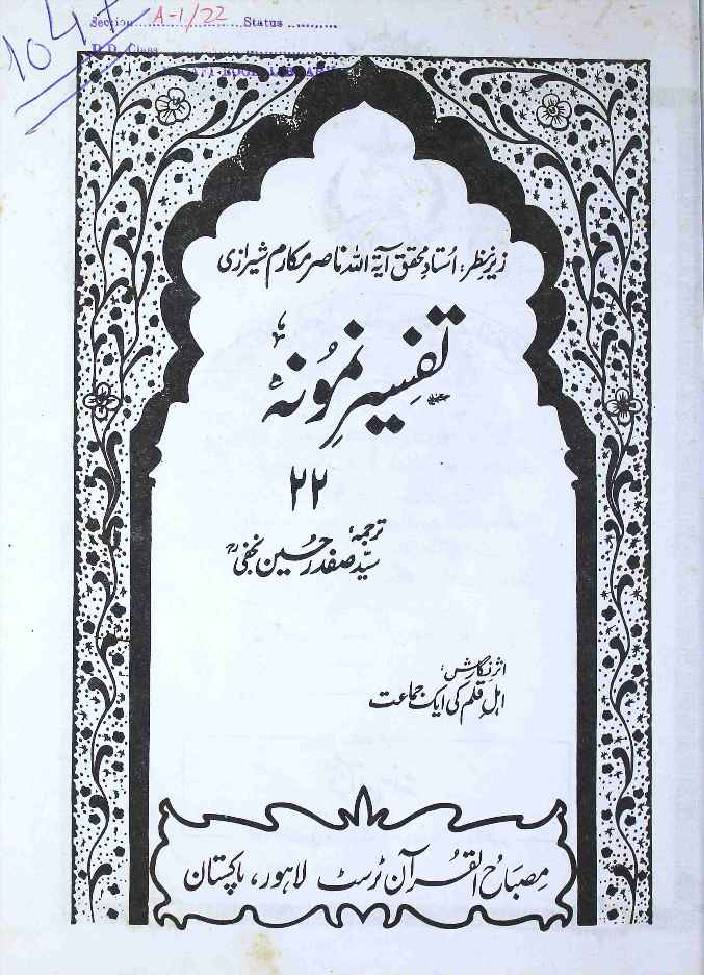 Section A-1/22 Status
D.D. Class
1041
زیرِ نظر: اُستادِ محقق آیۃ اللہ ناصر مکارم شیرازی
تفسیرِ نمونہ
۲۲
ترجمہ:
سیّد صفدر حسین نجفیؒ
اثرِ نگارش:
اہلِ قلم کی ایک جماعت
مصباحُ القُرآن ٹرسٹ لاہور، پاکستان